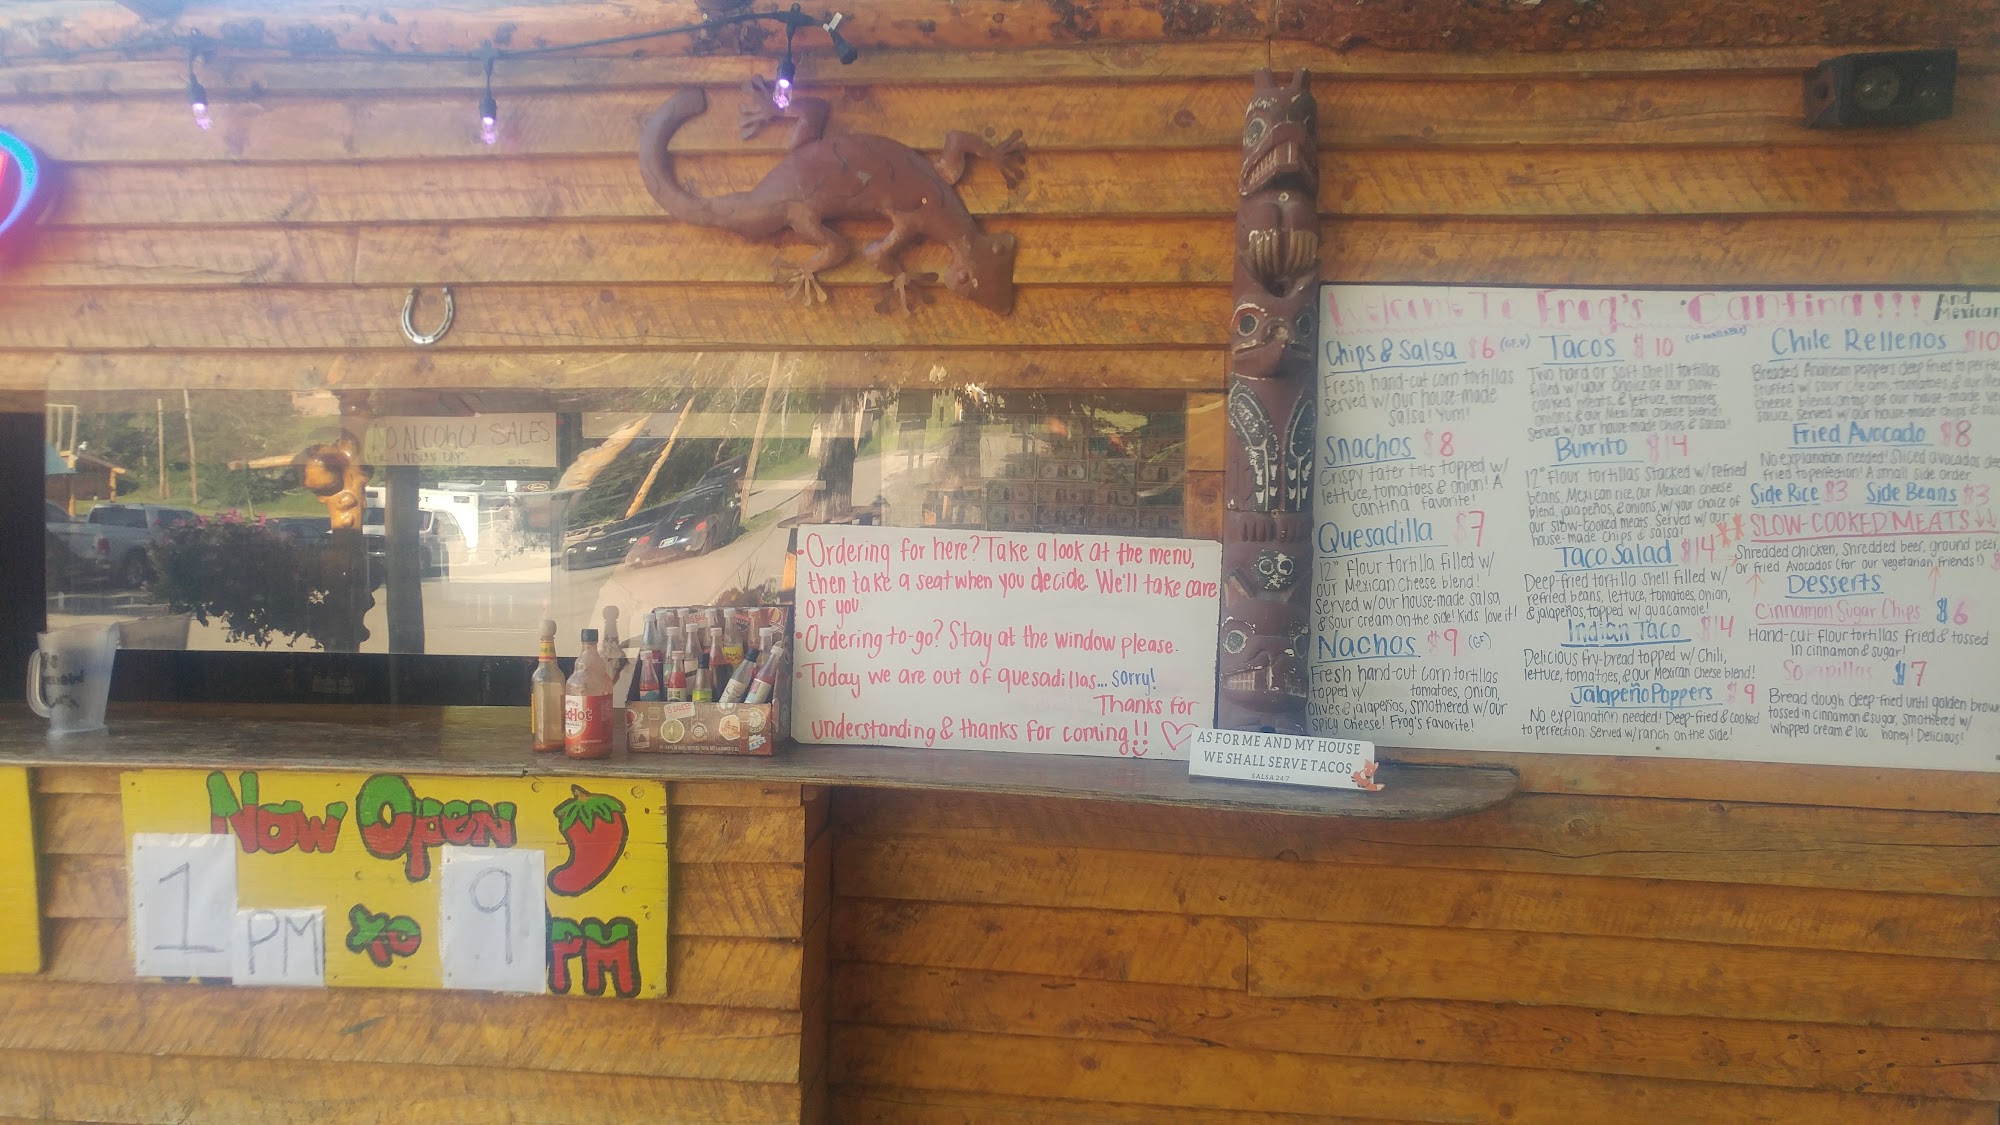 NO ALCOHOL SALES
FOR INDIAN DAYS
Ordering for here? Take a look at the menu,
then take a seat when you decide. We'll take care
of you.
Ordering to-go? Stay at the window please.
Today we are out of quesadillas... sorry!
Thanks for
understanding & thanks for coming!!
AS FOR ME AND MY HOUSE
WE SHALL SERVE TACOS
SALSA 24:7
Now Open
1 PM to 9 PM
Welcome To Frog's Cantina!!!
And
Mexican
Chips & Salsa $6 (GF,V)
Fresh hand-cut corn tortillas
served w/ our house-made
salsa! Yum!
Snachos $8
Crispy tater tots topped w/
lettuce, tomatoes & onion! A
cantina favorite!
Quesadilla $7
12" flour tortilla filled w/
our Mexican cheese blend!
Served w/ our house-made salsa
& sour cream on the side! Kids love it!
Nachos $9 (GF)
Fresh hand-cut corn tortillas
topped w/ tomatoes, onion,
olives & jalapeños, smothered w/ our
spicy cheese! Frog's favorite!
Tacos $10 (GF available)
Two hard or soft shell tortillas
filled w/ your choice of our slow-
cooked meats, & lettuce, tomatoes,
onions, & our Mexican cheese blend!
Served w/ our house-made chips & salsa!
Burrito $14
12" flour tortillas stacked w/ refried
beans, Mexican rice, our Mexican cheese
blend, jalapeños, & onions, w/ your choice of
our slow-cooked meats. Served w/ our
house-made chips & salsa!
Taco Salad $14
Deep-fried tortilla shell filled w/
refried beans, lettuce, tomatoes, onion,
& jalapeños, topped w/ guacamole!
Indian Taco $14
Delicious fry-bread topped w/ chili,
lettuce, tomatoes, & our Mexican cheese blend!
Jalapeño Poppers $9
No explanation needed! Deep-fried & cooked
to perfection. Served w/ ranch on the side!
Chile Rellenos $10
Breaded Anaheim peppers deep fried to
stuffed w/ sour cream, tomatoes, & our
cheese blend, on top of our house-made
sauce. Served w/ our house-made chips &
Fried Avocado $8
No explanation needed! Sliced avocados
fried to perfection! A small side order
Side Rice $3 Side Beans $3
SLOW-COOKED MEATS
Shredded chicken, shredded beef, ground beef,
or fried Avocados (for our vegetarian friends!)
Desserts
Cinnamon Sugar Chips $6
Hand-cut flour tortillas fried & tossed
in cinnamon & sugar!
Sopapillas $7
Bread dough deep-fried until golden brown
tossed in cinnamon & sugar, smothered w/
whipped cream & honey! Delicious!